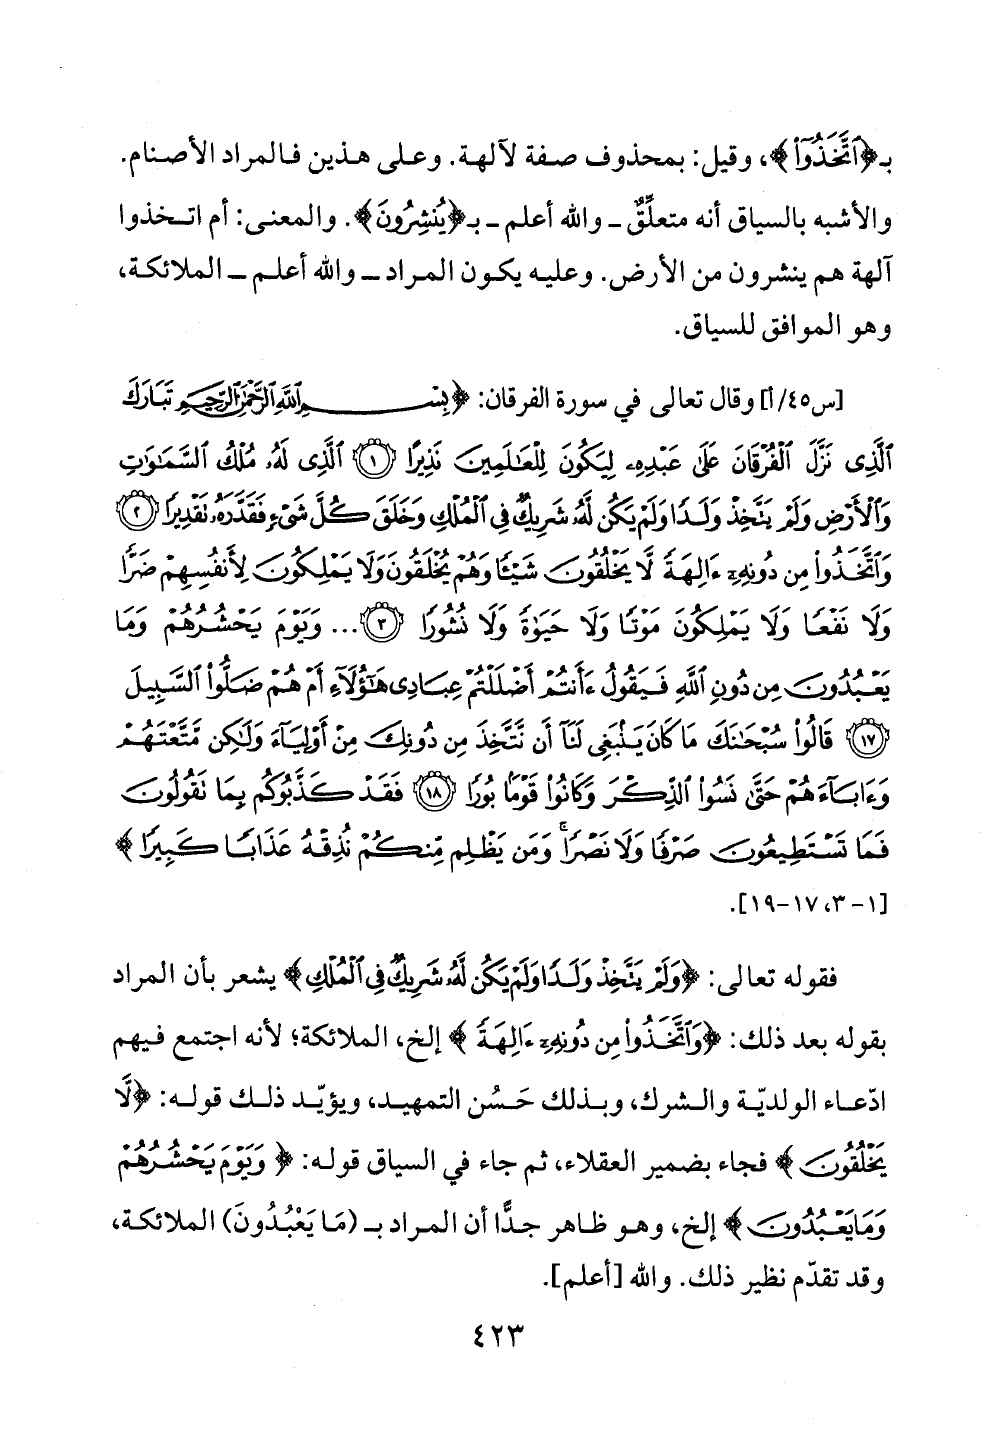 بـ﴿ٱتَّخَذُوٓا۟﴾، وقيل: بمحذوف صفة لآلهة. وعلى هذين فالمراد الأصنام.
والأشبه بالسياق أنه متعلِّقٌ ـ والله أعلم ـ بـ﴿يُنشِرُونَ﴾. والمعنى: أم اتخذوا
آلهة هم ينشرون من الأرض. وعليه يكون المراد ـ والله أعلم ـ الملائكة،
وهو الموافق للسياق.
[س٤٥/أ] وقال تعالى في سورة الفرقان: ﴿بِسْمِ ٱللَّهِ ٱلرَّحْمَٰنِ ٱلرَّحِيمِ تَبَارَكَ
ٱلَّذِى نَزَّلَ ٱلْفُرْقَانَ عَلَىٰ عَبْدِهِۦ لِيَكُونَ لِلْعَٰلَمِينَ نَذِيرًا ١ ٱلَّذِى لَهُۥ مُلْكُ ٱلسَّمَٰوَٰتِ
وَٱلْأَرْضِ وَلَمْ يَتَّخِذْ وَلَدًا وَلَمْ يَكُن لَّهُۥ شَرِيكٌ فِى ٱلْمُلْكِ وَخَلَقَ كُلَّ شَىْءٍ فَقَدَّرَهُۥ تَقْدِيرًا ٢
وَٱتَّخَذُوا۟ مِن دُونِهِۦٓ ءَالِهَةً لَّا يَخْلُقُونَ شَيْـًٔا وَهُمْ يُخْلَقُونَ وَلَا يَمْلِكُونَ لِأَنفُسِهِمْ ضَرًّا
وَلَا نَفْعًا وَلَا يَمْلِكُونَ مَوْتًا وَلَا حَيَوٰةً وَلَا نُشُورًا ٣ ... وَيَوْمَ يَحْشُرُهُمْ وَمَا
يَعْبُدُونَ مِن دُونِ ٱللَّهِ فَيَقُولُ ءَأَنتُمْ أَضْلَلْتُمْ عِبَادِى هَٰٓؤُلَآءِ أَمْ هُمْ ضَلُّوا۟ ٱلسَّبِيلَ
١٧ قَالُوا۟ سُبْحَٰنَكَ مَا كَانَ يَنۢبَغِى لَنَآ أَن نَّتَّخِذَ مِن دُونِكَ مِنْ أَوْلِيَآءَ وَلَٰكِن مَّتَّعْتَهُمْ
وَءَابَآءَهُمْ حَتَّىٰ نَسُوا۟ ٱلذِّكْرَ وَكَانُوا۟ قَوْمًۢا بُورًا ١٨ فَقَدْ كَذَّبُوكُم بِمَا تَقُولُونَ
فَمَا تَسْتَطِيعُونَ صَرْفًا وَلَا نَصْرًا ۚ وَمَن يَظْلِم مِّنكُمْ نُذِقْهُ عَذَابًا كَبِيرًا﴾
[١-٣، ١٧-١٩].
فقوله تعالى: ﴿وَلَمْ يَتَّخِذْ وَلَدًا وَلَمْ يَكُن لَّهُۥ شَرِيكٌ فِى ٱلْمُلْكِ﴾ يشعر بأن المراد
بقوله بعد ذلك: ﴿وَٱتَّخَذُوا۟ مِن دُونِهِۦٓ ءَالِهَةً﴾ إلخ، الملائكة؛ لأنه اجتمع فيهم
ادّعاء الولديّة والشرك، وبذلك حَسُن التمهيد، ويؤيّد ذلك قوله: ﴿لَّا
يَخْلُقُونَ﴾ فجاء بضمير العقلاء، ثم جاء في السياق قوله: ﴿وَيَوْمَ يَحْشُرُهُمْ
وَمَا يَعْبُدُونَ﴾ إلخ، وهو ظاهر جدًّا أن المراد بـ (مَا يَعْبُدُونَ) الملائكة،
وقد تقدّم نظير ذلك. والله [أعلم].
٤٢٣